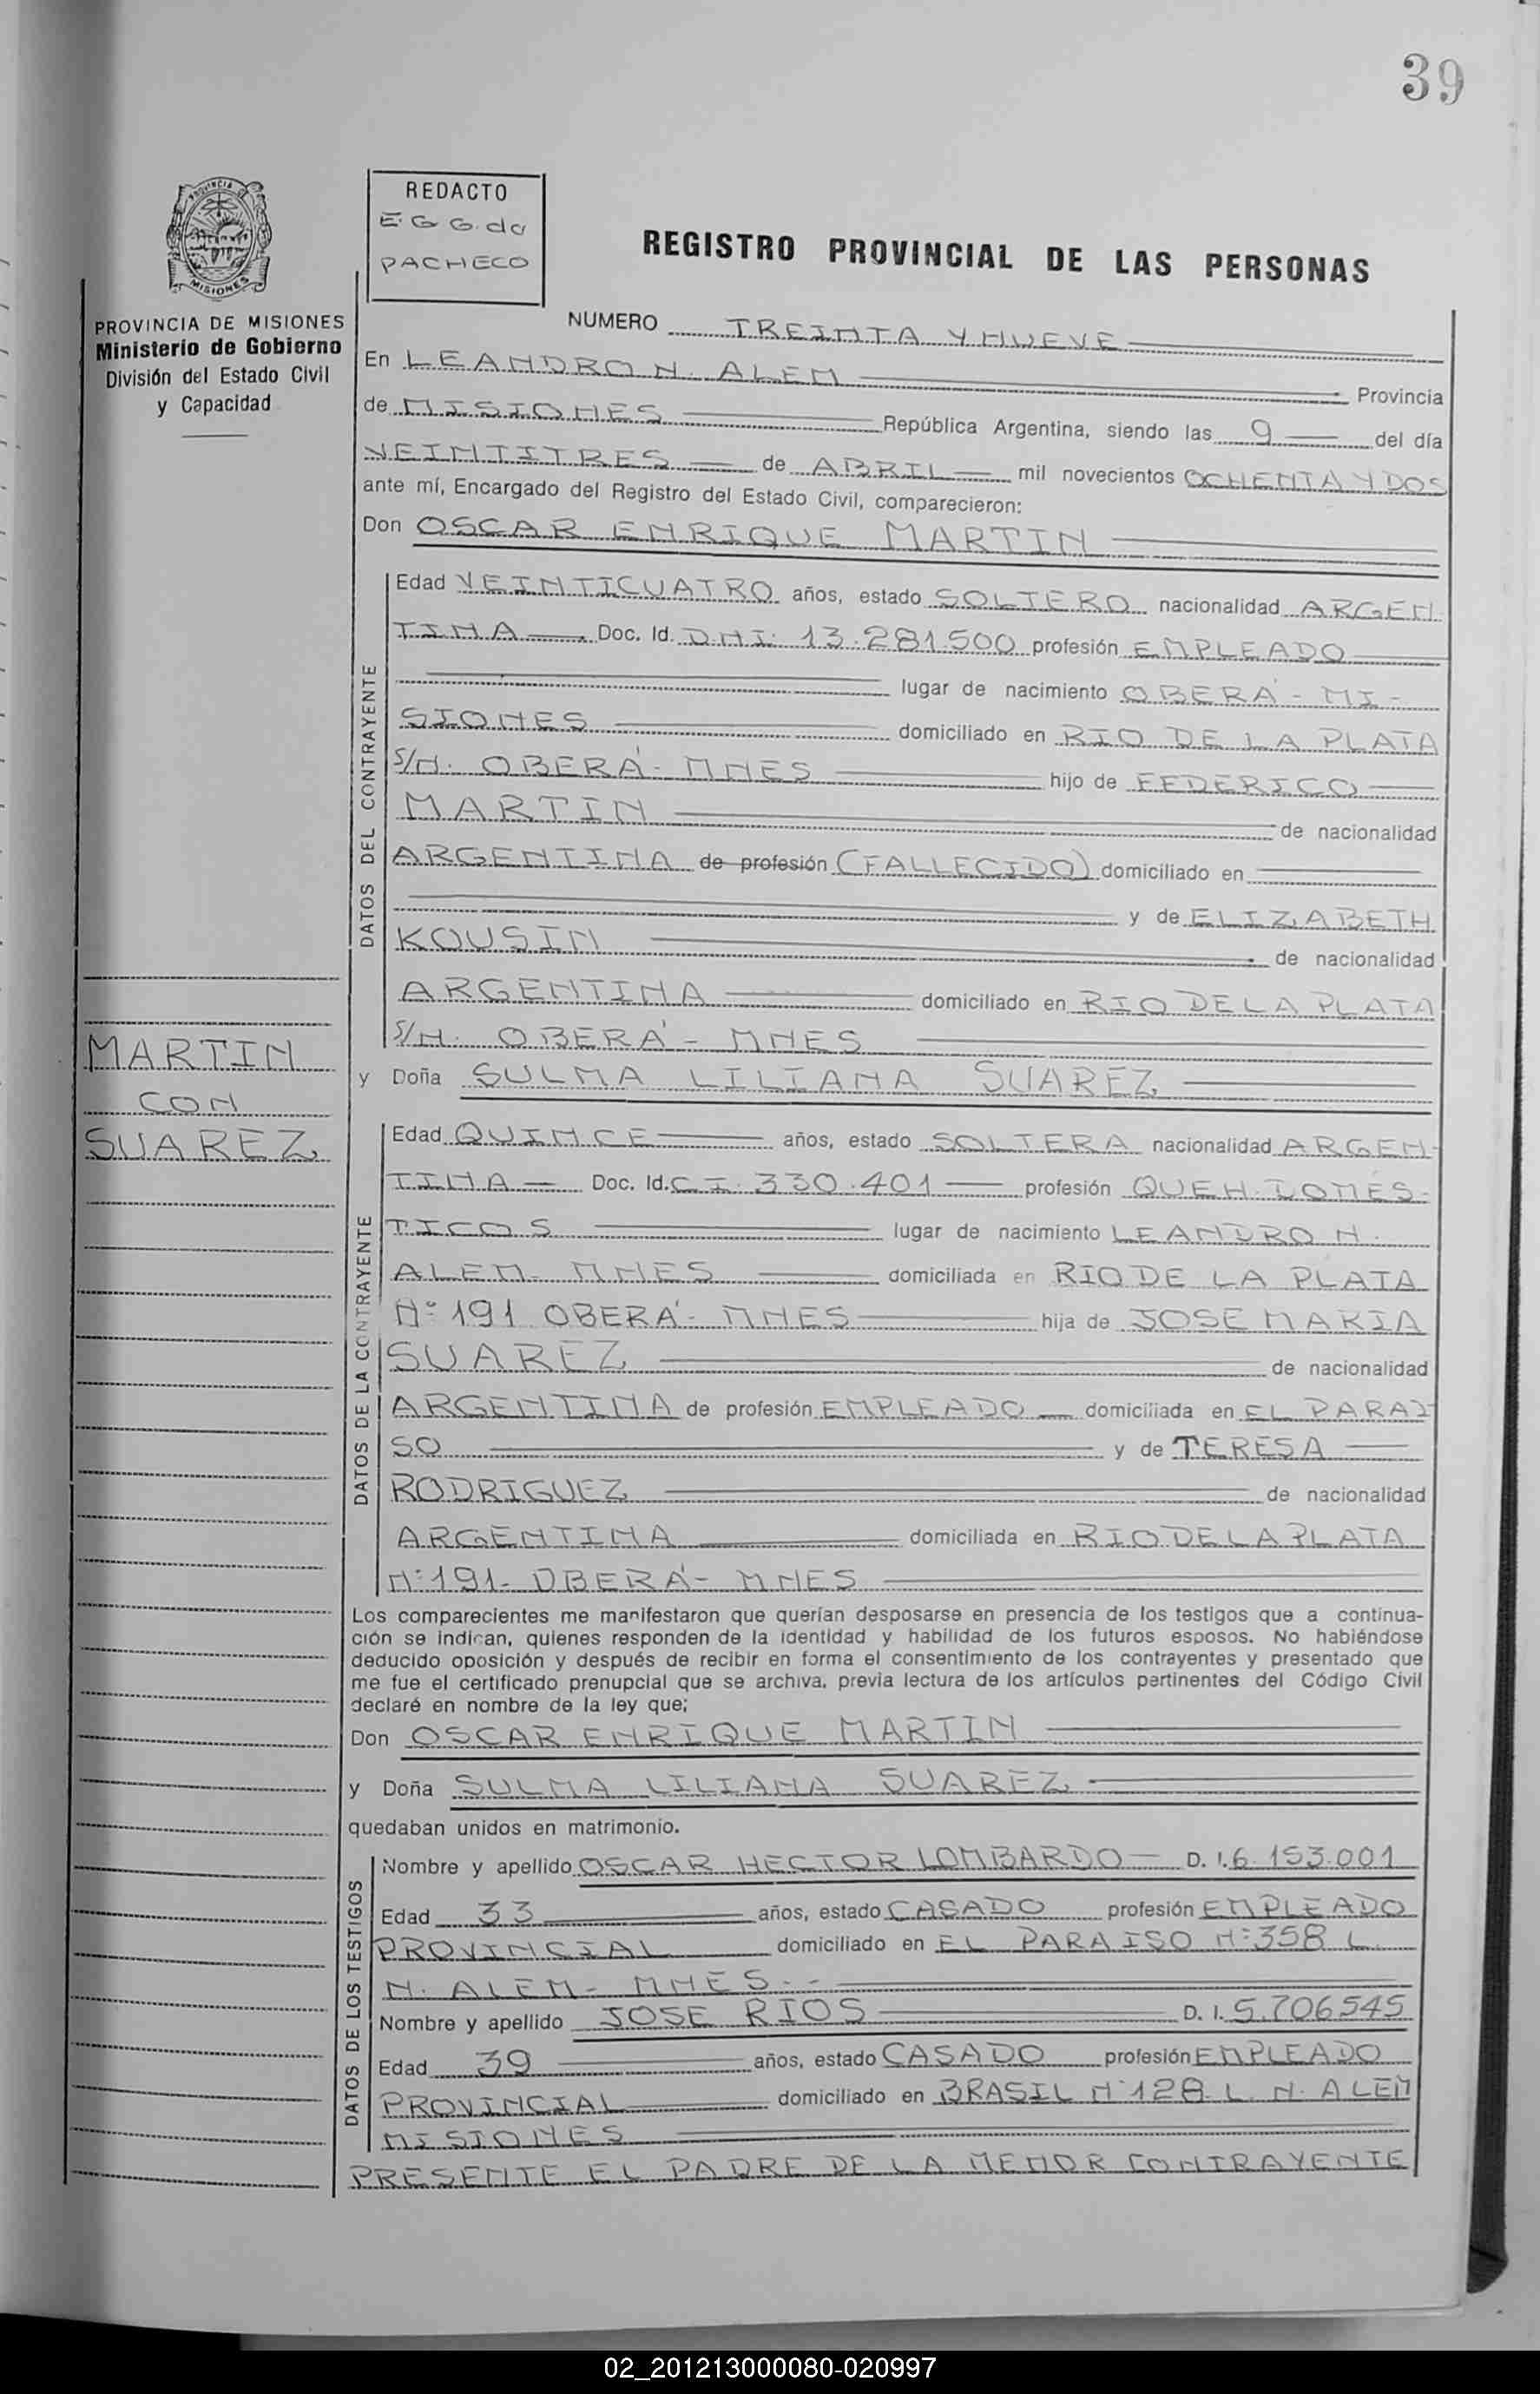 39
PROVINCIA
MISIONES
PROVINCIA DE MISIONES
Ministerio de Gobierno
División del Estado Civil
y Capacidad
REDACTO
E. G G. da
PACHECO
REGISTRO PROVINCIAL DE LAS PERSONAS
NUMERO TREINTA Y NUEVE
En LEANDRO N. ALEM Provincia
de MISIONES República Argentina, siendo las 9 del día
VEINTITRES de ABRIL mil novecientos OCHENTA Y DOS
ante mí, Encargado del Registro del Estado Civil, comparecieron:
Don OSCAR ENRIQUE MARTIN
DATOS DEL CONTRAYENTE
Edad VEINTICUATRO años, estado SOLTERO nacionalidad ARGEN
TINA Doc. Id. D.N.I. 13.281.500 profesión EMPLEADO
lugar de nacimiento OBERÁ - MI-
SIONES domiciliado en RIO DE LA PLATA
S/N. OBERÁ - MNES hijo de FEDERICO
MARTIN de nacionalidad
ARGENTINA de profesión (FALLECIDO) domiciliado en
y de ELIZABETH
KOUSIN de nacionalidad
ARGENTINA domiciliado en RIO DE LA PLATA
S/N. OBERÁ - MNES
MARTIN
CON
SUAREZ
y Doña SULMA LILIANA SUAREZ
DATOS DE LA CONTRAYENTE
Edad QUINCE años, estado SOLTERA nacionalidad ARGEN
TINA Doc. Id. C.I. 330.401 profesión QUEH. DOMES-
TICOS lugar de nacimiento LEANDRO N.
ALEM - MNES domiciliada en RIO DE LA PLATA
N° 191 OBERÁ - MNES hija de JOSE MARIA
SUAREZ de nacionalidad
ARGENTINA de profesión EMPLEADO domiciliada en EL PARAI
SO y de TERESA
RODRIGUEZ de nacionalidad
ARGENTINA domiciliada en RIO DE LA PLATA
N° 191 - OBERÁ - MNES
Los comparecientes me manifestaron que querían desposarse en presencia de los testigos que a continua-
ción se indican, quienes responden de la identidad y habilidad de los futuros esposos. No habiéndose
deducido oposición y después de recibir en forma el consentimiento de los contrayentes y presentado que
me fue el certificado prenupcial que se archiva, previa lectura de los artículos pertinentes del Código Civil
declaré en nombre de la ley que;
Don OSCAR ENRIQUE MARTIN
y Doña SULMA LILIANA SUAREZ
quedaban unidos en matrimonio.
DATOS DE LOS TESTIGOS
Nombre y apellido OSCAR HECTOR LOMBARDO D. I. 6.153.001
Edad 33 años, estado CASADO profesión EMPLEADO
PROVINCIAL domiciliado en EL PARAISO N° 358 L.
N. ALEM - MNES.-
Nombre y apellido JOSE RIOS D. I. 5.706545
Edad 39 años, estado CASADO profesión EMPLEADO
PROVINCIAL domiciliado en BRASIL N° 128 L. N. ALEM
MISIONES
PRESENTE EL PADRE DE LA MENOR CONTRAYENTE
02_201213000080-020997